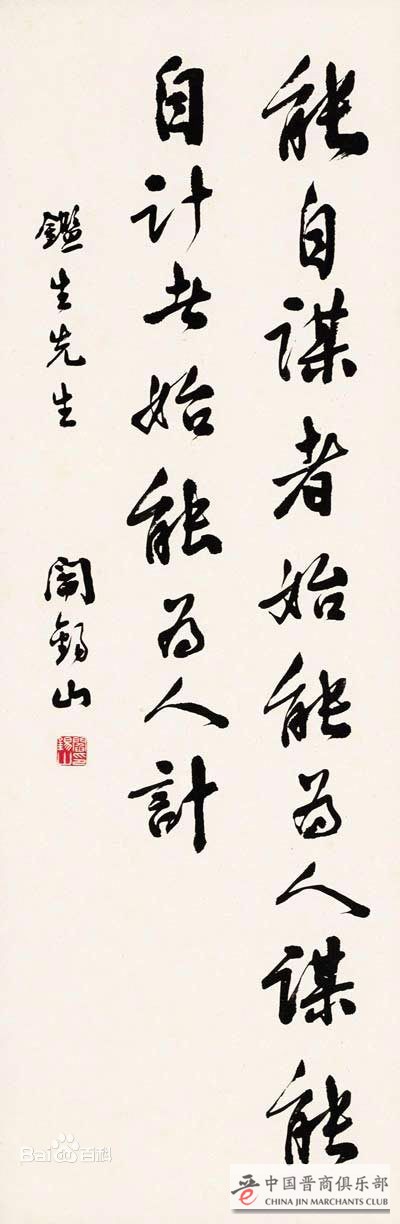 能自謀者始能為人謀能
自計者始能為人計
鑑生先生
閻錫山
閻錫山印
Bai百科
晋
中国晋商俱乐部
CHINA JIN MARCHANTS CLUB